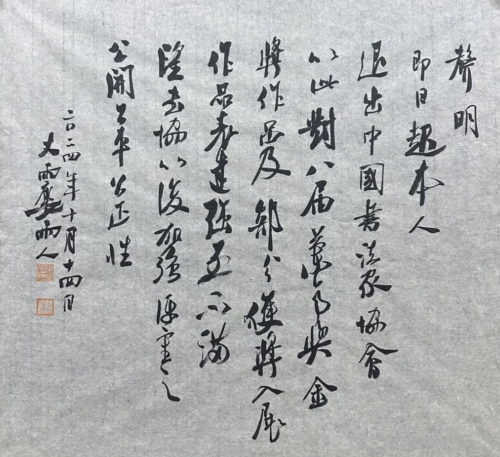 聲明
即日起本人
退出中國書法家協會
以此對八届蘭亭奖金
獎作品及部分獲獎入展
作品表達强烈不满
望書協以後加强評審之
公開公平公正性
二〇二四年十月十四日
雨人